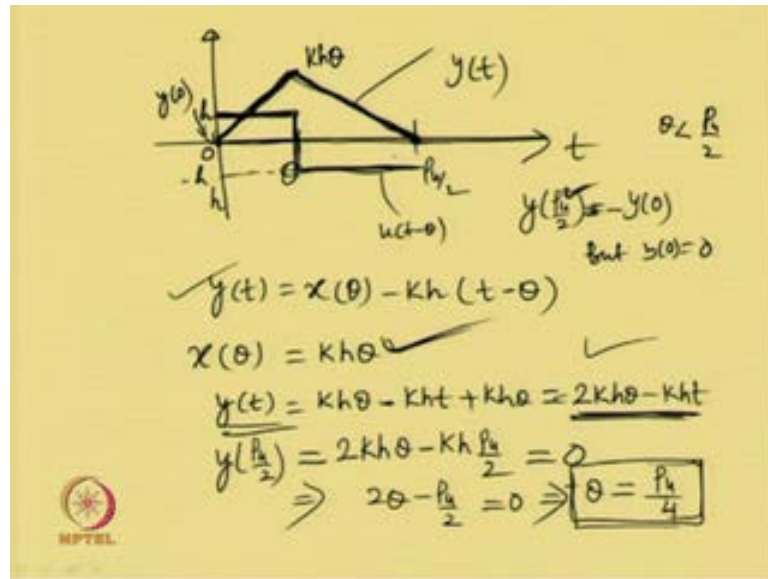 Khθ
y(t)
y(0)
h
0
t
θ < Pu/2
-h
θ
Pu/2
h
u(t-θ)
y(Pu/2) = -y(0)
but y(0)=0
y(t) = x(θ) - Kh (t-θ)
x(θ) = Khθ
y(t) = Khθ - Kht + Khθ = 2Khθ - Kht
y(Pu/2) = 2Khθ - Kh Pu/2 = 0
⇒ 2θ - Pu/2 = 0 ⇒ θ = Pu/4
NPTEL